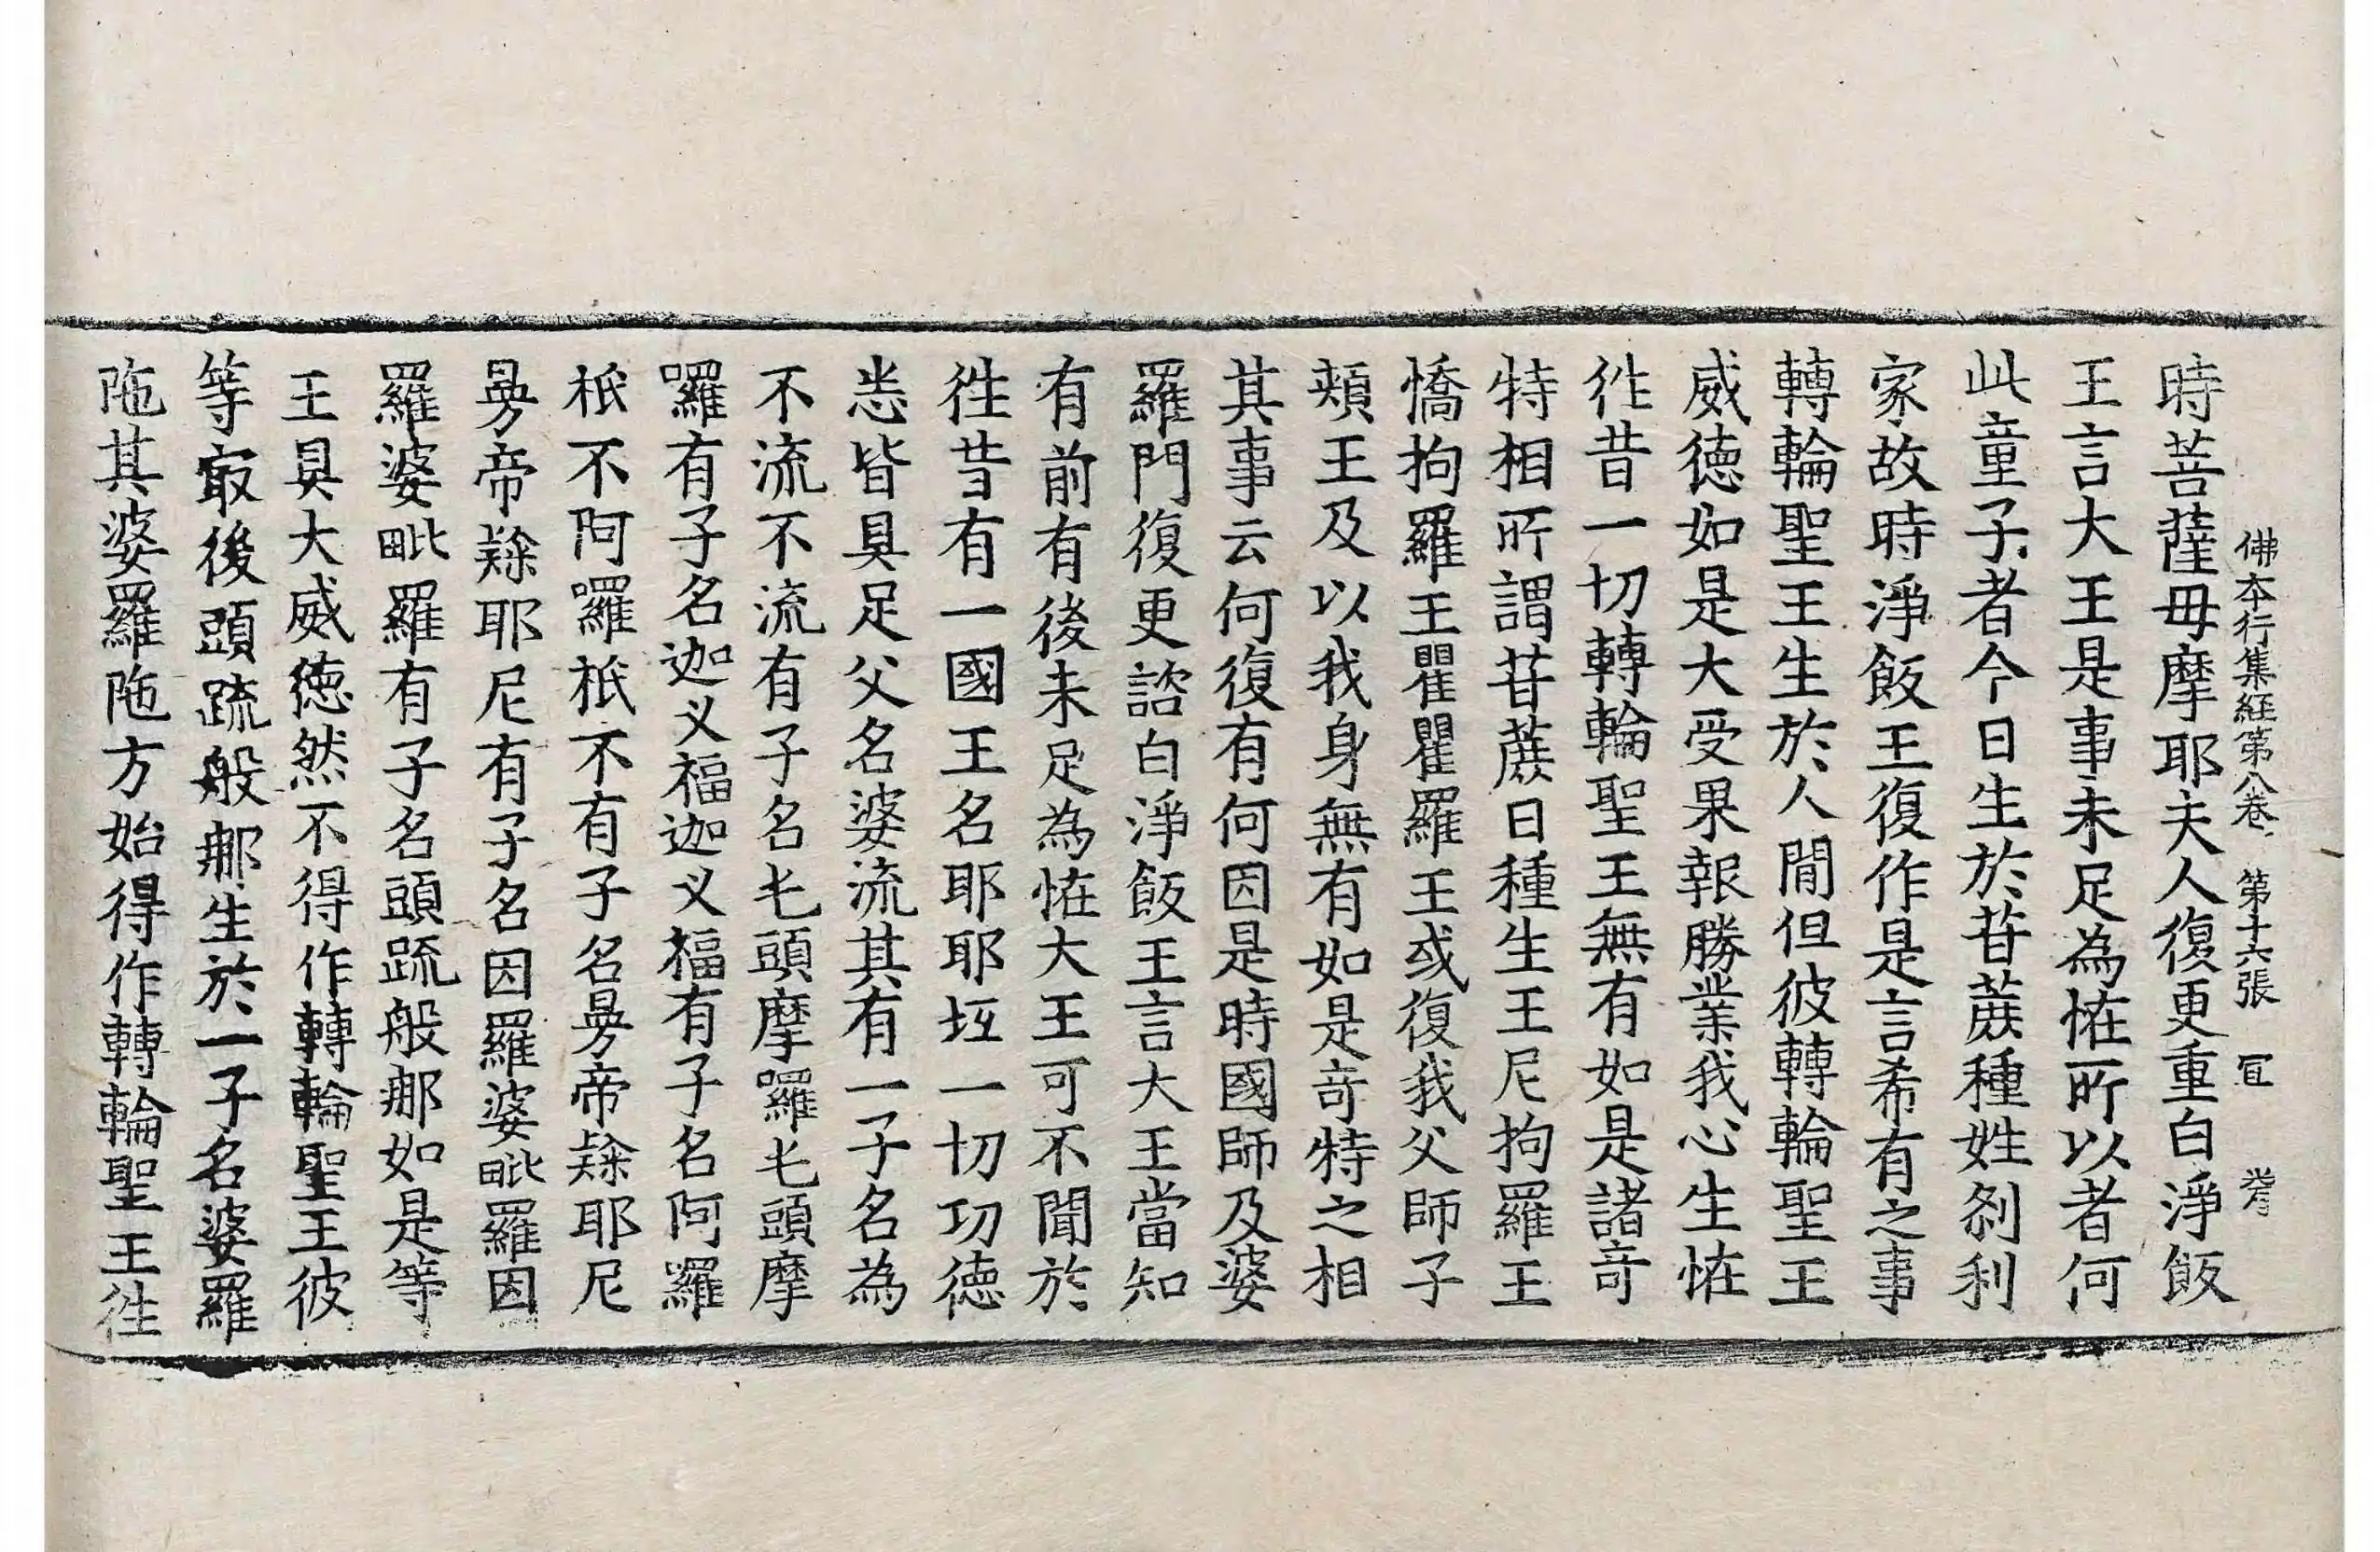 佛本行集経第八卷 第十六張 冝
時菩薩母摩耶夫人復更重白淨飯
王言大王是事未足為恠所以者何
此童子者今日生於苷蔗種姓剎利
家故時淨飯王復作是言希有之事
轉輪聖王生於人閒但彼轉輪聖王
威德如是大受果報勝業我心生恠
徃昔一切轉輪聖王無有如是諸竒
特相所謂苷蔗日種生王尼拘羅王
憍拘羅王瞿瞿羅王或復我父師子
頰王及以我身無有如是竒特之相
其事云何復有何因是時國師及婆
羅門復更諮白淨飯王言大王當知
有前有後未足為恠大王可不聞於
徃昔有一國王名耶耶坘一切功德
悉皆具足父名婆流其有一子名為
不流不流有子名乇頭摩囉乇頭摩
囉有子名迦义福迦义福有子名阿囉
祇不阿囉祇不有子名㬅帝𨽻耶尼
㬅帝𨽻耶尼有子名因羅婆毗羅因
羅婆毗羅有子名頭䟽般那如是等
王具大威德然不得作轉輪聖王彼
等㝡後頭䟽般那生於一子名婆羅
陁其婆羅陁方始得作轉輪聖王徃